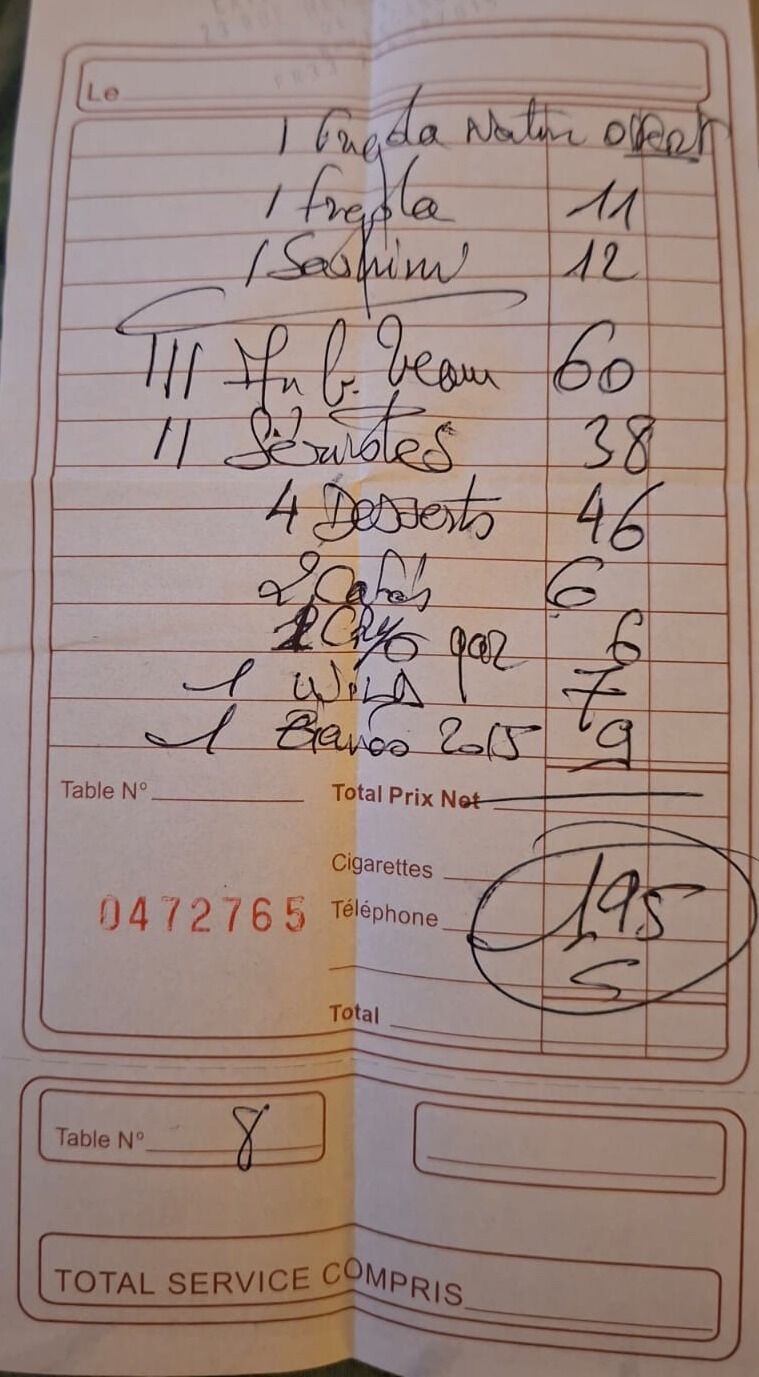 Le
1 Fregola Natur offert
1 fregola 11
1 Sashimi 12
III 60
II 38
4 Desserts 46
2 Cafés 6
gaz 6
1 Wild 7
1 2015 9
Table N° Total Prix Net
Cigarettes
195
0472765 Téléphone
5
Total
Table N° 8
TOTAL SERVICE COMPRIS